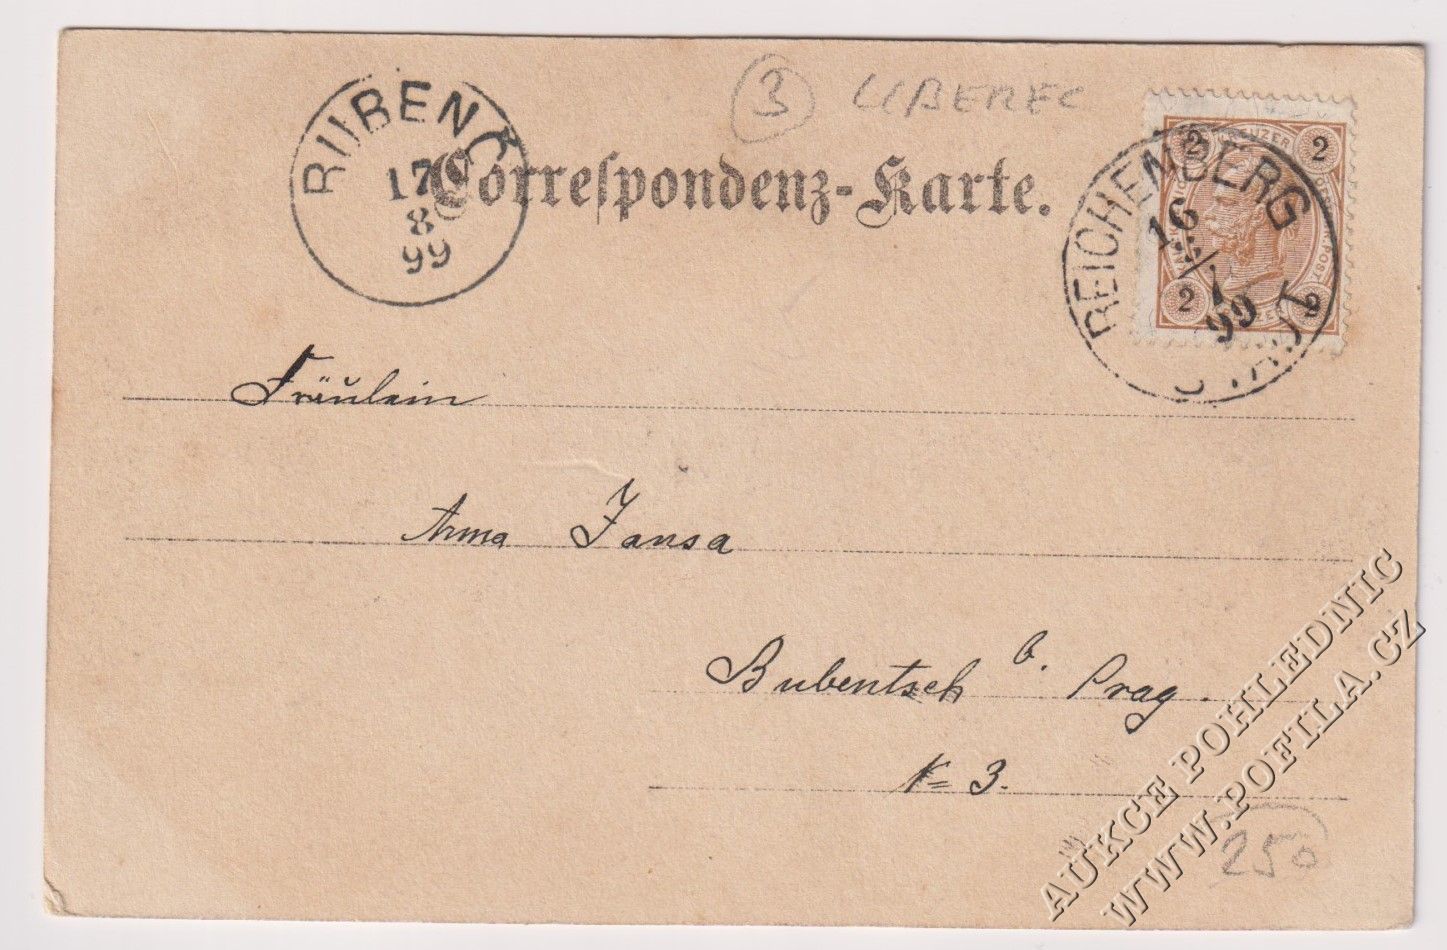 3 LIBEREC
BUBENČ
17
8
99
Correspondenz-Karte.
REICHENBERG STADT
16
99
2 2
2 2
Fräulein
Anna Jansa
Bubentsch b. Prag.
N= 3.
250
AUKCE POHLEDNIC
WWW.POFILA.CZ